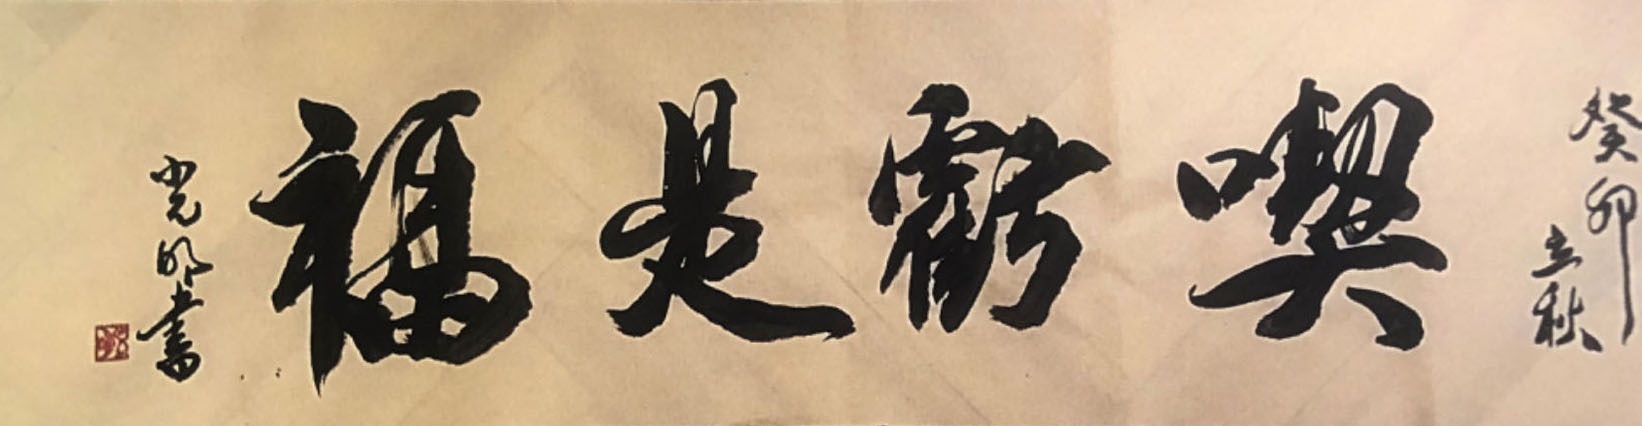 癸卯
立秋
喫虧是福
光明書